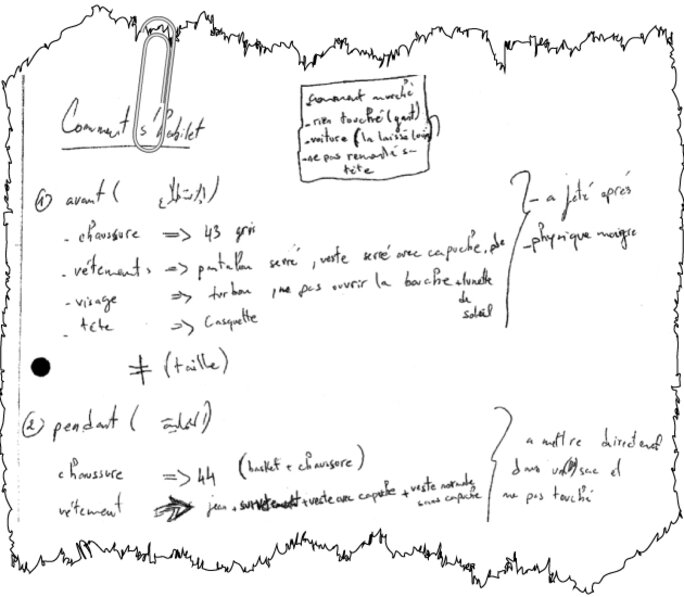 Comment s'habilet
comment marché
- rien touché (gant)
- voiture (la laissé loin)
- ne pas remonté sa
tête
① avant (
- chaussure => 43 gris
- vétements => pantalon serré, veste serré avec capuche,
- visage => turban, ne pas ouvrir la bouche + lunette
de
soleil
- tête => Casquette
- a jeté aprés
- physique maigre
≠ (taille)
② pendant (
chaussure => 44 (basket + chaussure)
vétement => jean + survetement + veste avec capuche + veste normale
sans capuche
a mettre directement
dans un sac et
ne pas touché